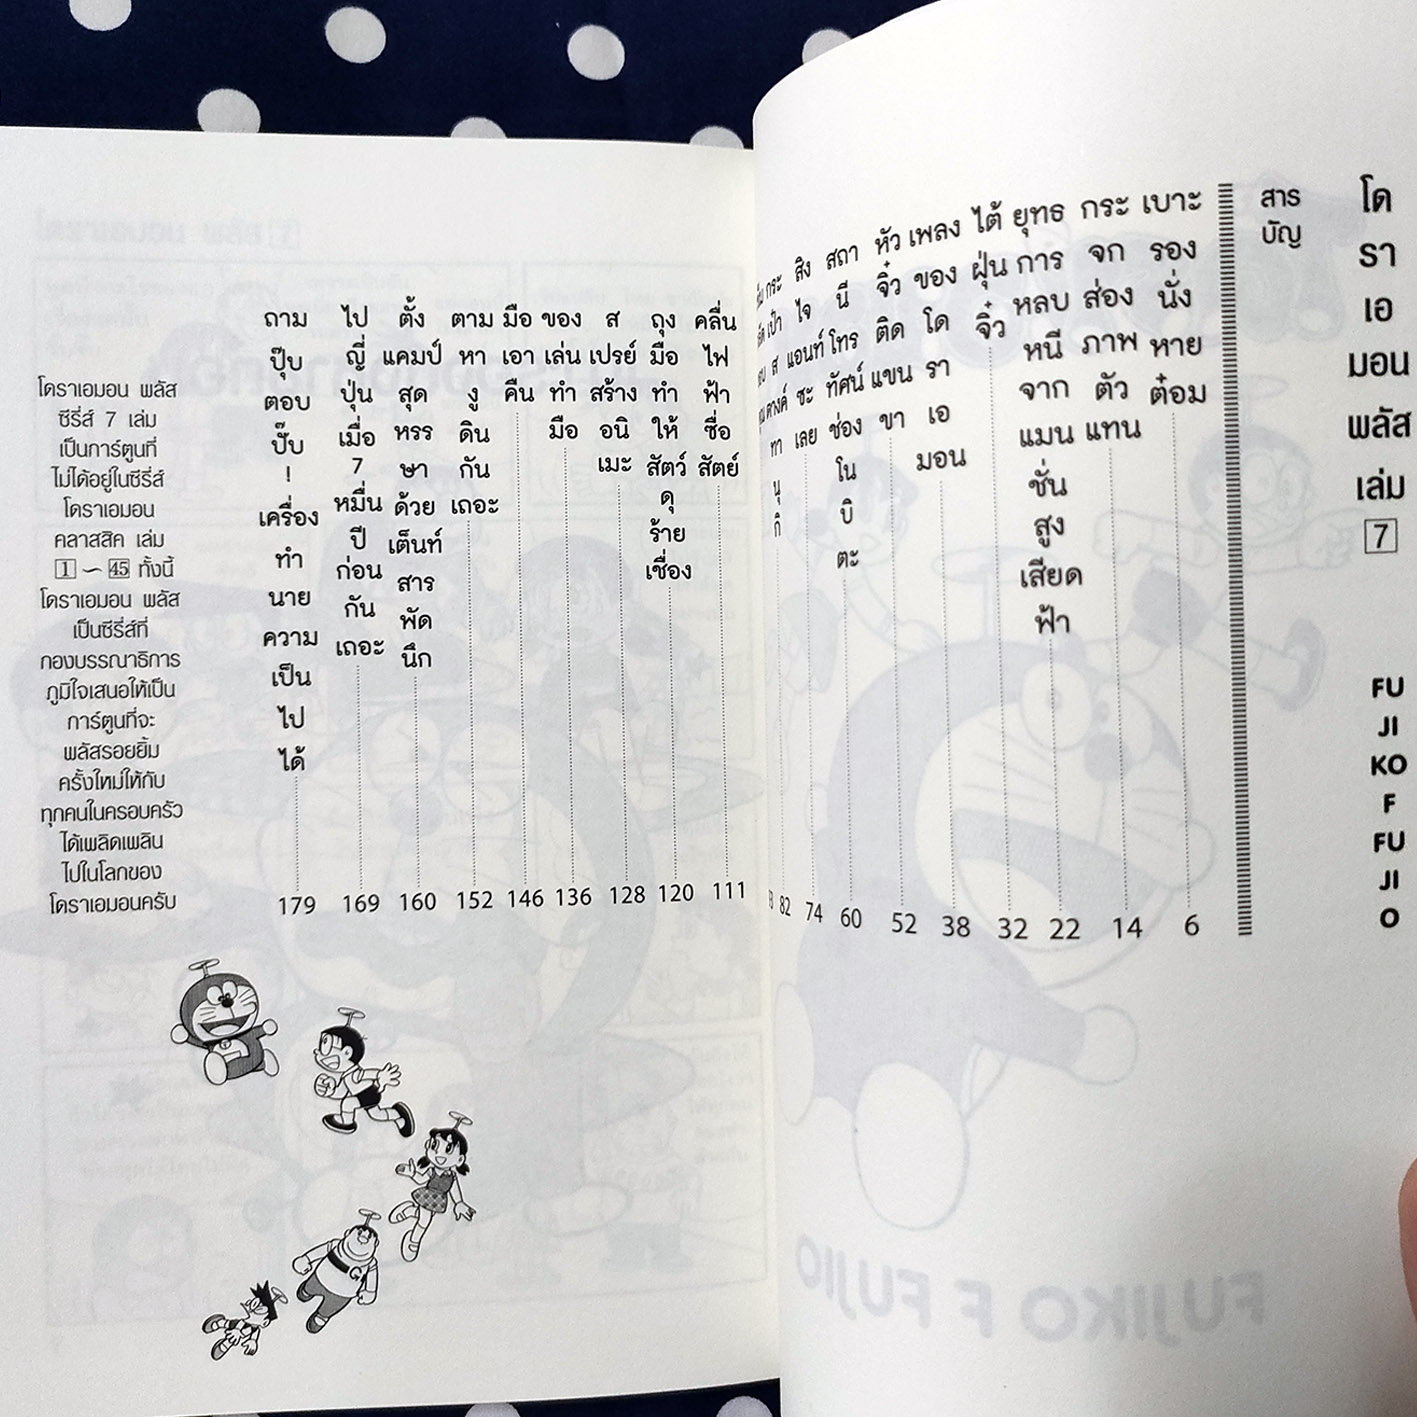 โดราเอมอน พลัส เล่ม 7
FUJIKO F FUJIO
สารบัญ
เบาะรองนั่งหายต๋อม 6
กระจกส่องภาพตัวแทน 14
ยุทธการหลบหนีจากแมนชั่นสูงเสียดฟ้า 22
ไต้ฝุ่นจิ๋ว 32
เพลงของโดราเอมอน 38
หัวจิ๋วติดแขนขา 52
สถานีโทรทัศน์ช่องโนบิตะ 60
สิงใจแอนท์ซะเลย 74
กระเป๋าสตางค์ทานุกิ 82
คลื่นไฟฟ้าซื่อสัตย์ 111
ถุงมือทำให้สัตว์ดุร้ายเชื่อง 120
สเปรย์สร้างอนิเมะ 128
ของเล่นทำมือ 136
มือเอาคืน 146
ตามหางูดินกันเถอะ 152
ตั้งแคมป์สุดหรรษาด้วยเต็นท์สารพัดนึก 160
ไปญี่ปุ่นเมื่อ 7 หมื่นปีก่อนกันเถอะ 169
ถามปุ๊บตอบปั๊บ! เครื่องทำนายความเป็นไปได้ 179
โดราเอมอน พลัส
ซีรี่ส์ 7 เล่ม
เป็นการ์ตูนที่
ไม่ได้อยู่ในซีรี่ส์
โดราเอมอน
คลาสสิค เล่ม
1 ~ 45 ทั้งนี้
โดราเอมอน พลัส
เป็นซีรี่ส์ที่
กองบรรณาธิการ
ภูมิใจเสนอให้เป็น
การ์ตูนที่จะ
พลัสรอยยิ้ม
ครั้งใหม่ให้กับ
ทุกคนในครอบครัว
ได้เพลิดเพลิน
ไปในโลกของ
โดราเอมอนครับ